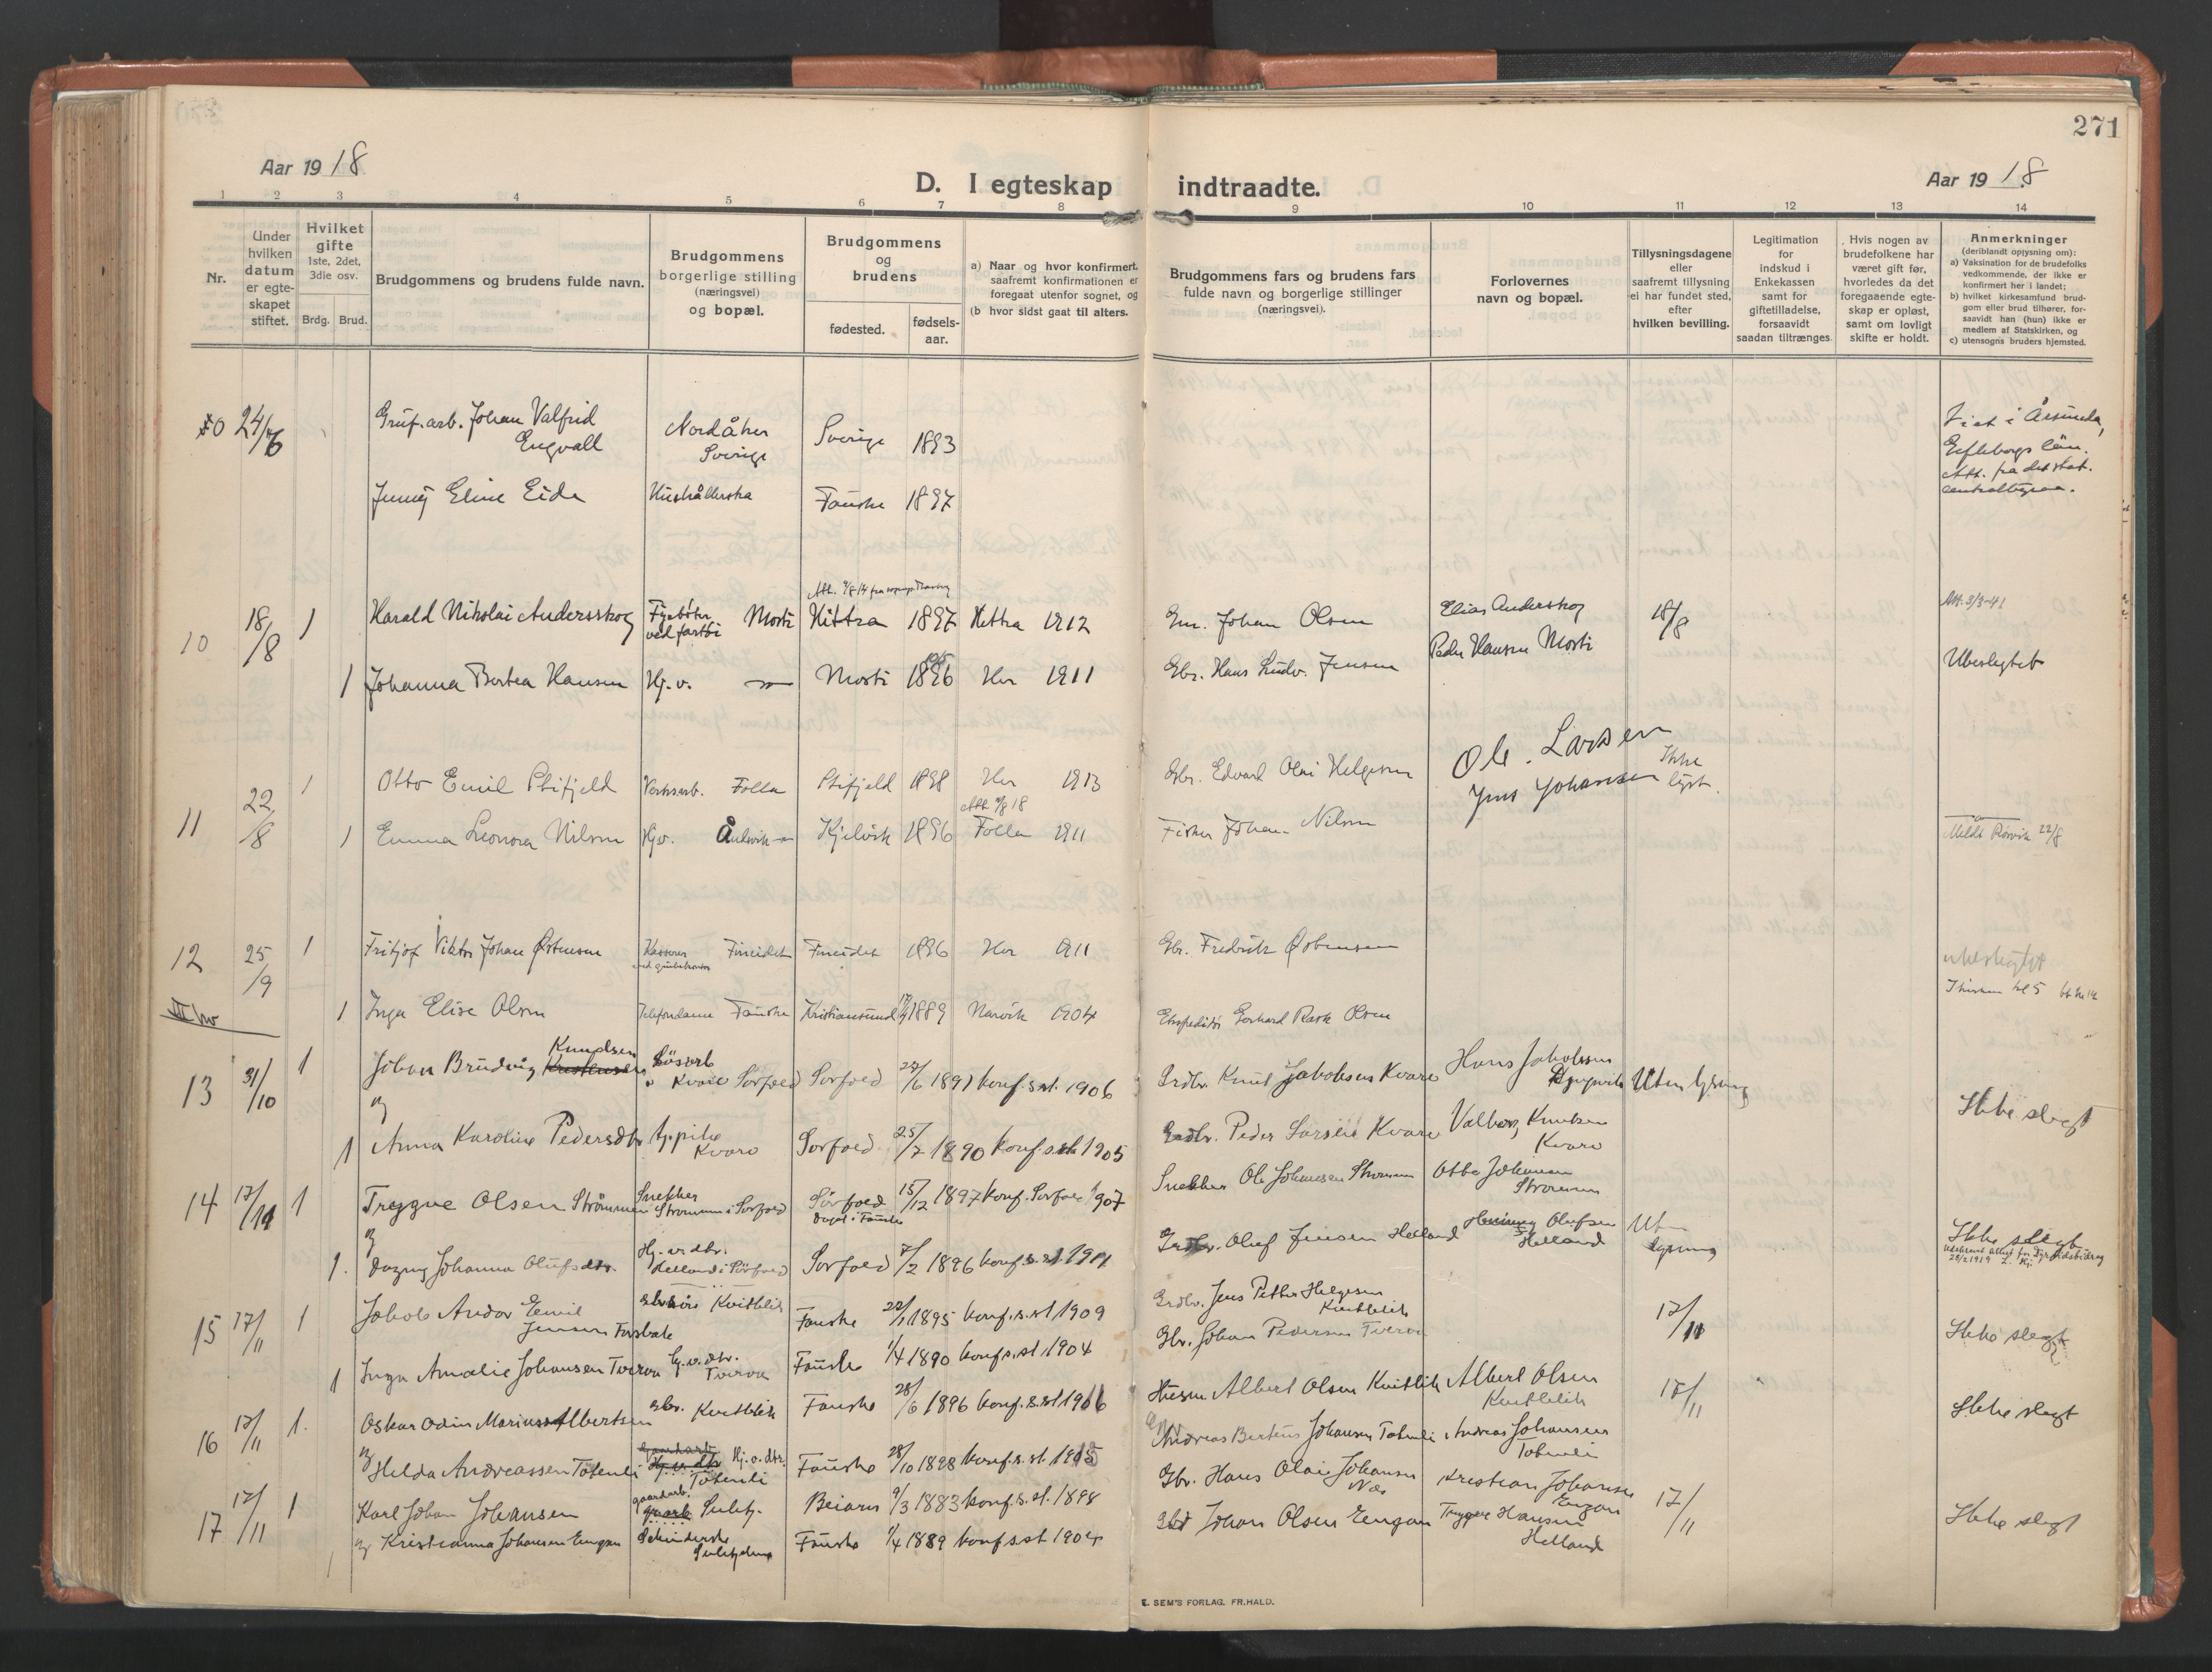 271
Aar 1918
D. I egteskap indtraadte.
Aar 1918
1 2 3 4 5 6 7 8 9 10 11 12 13 14
Nr.
Under hvilken datum er egte-skapet stiftet.
Hvilket gifte 1ste, 2det, 3die osv.
Brdg. Brud.
Brudgommens og brudens fulde navn.
Brudgommens borgerlige stilling (næringsvei) og bopæl.
Brudgommens og brudens
fødested. fødsels-aar.
a) Naar og hvor konfirmert, saafremt konfirmationen er foregaat utenfor sognet, og
(b hvor sidst gaat til alters.
Brudgommens fars og brudens fars fulde navn og borgerlige stillinger (næringsvei).
Forlovernes navn og bopæl.
Tillysningsdagene eller saafremt tillysning ei har fundet sted, efter hvilken bevilling.
Legitimation for indskud i Enkekassen samt for giftetilladelse, forsaavidt saadan tiltrænges.
Hvis nogen av brudefolkene har været gift før, hvorledes da det foregaaende egte-skap er opløst, samt om lovligt skifte er holdt.
Anmerkninger
(deriblandt oplysning om):
a) Vaksination for de brudefolks vedkommende, der ikke er konfirmert her i landet;
b) hvilket kirkesamfund brud-gom eller brud tilhører, for-saavidt han (hun) ikke er medlem af Statskirken, og
c) utensogns bruders hjemsted.
24/6 Gruf.arb. Johan Valfrid Engvall Nordåker Sverige Sverige 1893 i Årsunda, Gefleborgs län.
Jenny Eline Eide Hushållerska Fauske 1897
10 18/8 1 Harald Nikolai Andersskog Fyrbøter Mosti Hittra 1897 Hittra 1912 Em. Johan Olsen Elias Anderskog 18/8 Att. 3/3-41
1 Johanna Bertea Hansen Hj.v. Mosti 1896 Her 1911 Gbr. Hans Ludv. Jensen Peder Hansen Mosti Ubeslegtet
11 22/8 1 Otto Emil Stifjeld Verksarb. Folla Stifjeld 1898 Her 1913 Gbr. Edvard Olai Helgesen Ole Larsen Ikke lyst.
1 Emma Leonora Nilsen Hjv. Kjelvik 1896 Folla 1911 Fisker Johan Nilsen Jens Johansen Meldt Rørvik 22/8
12 25/9 1 Fritjof Viktor Johan Østensen Kasserer Fineidet Fineidet 1896 Her 1911 Gbr. Fredrik Østensen ubeslegtet
1 Inga Elise Olsen Telefondame Fauske Kristiansund 1889 Narvik 1904 Ekspeditør Gerhard Rask Olsen
13 31/10 1 Johan Brudvig Knudsen Kvarv Sørfold Sørfold 22/6 1891 konf. s. st. 1906 Grdbr. Knut Jakobsen Kvarv Hans Jakobsen Uten lysning
og
1 Anna Karoline Pedersdtr. Kvarv Sørfold 25/2 1890 konf. s. st. 1905 Grdbr. Peder Larsen Kvarv Valborg Knutsen Kvarv Ikke slegt
14 17/11 1 Trygve Olsen Strömmen Snekker Strømmen i Sørfold Sørfold døpt i Fauske 15/12 1897 konf. Sørfold 1907 Snekker Ole Johansen Strømmen Otto Johansen Strømmen
og
1. Dagny Johanna Olufsdtr. Hj. v. dtr. Helland i Sørfold Sørfold 7/2 1896 konf. s. st. 1911 Grdbr. Oluf Jensen Helland Henning Olufsen Helland Uten lysning Ikke slegt
15 17/11 1 Jakob Andor Emil Jensen Farsbakk Kvitblik Fauske 22/1 1895 konf. s. st. 1909 Grdbr. Jens Petter Helgesen Kvitblik 17/11 Ikke slegt
1 Inga Amalie Johansen Tverva Hj. v. dtr. Tverva Fauske 1/4 1890 konf. s. st. 1904 Gbr. Johan Pedersen Tverva
16 17/11 1. Oskar Odin Marius Albertsen Gbr. Kvitblik Fauske 28/6 1896 konf. s. st. 1911 Husm. Albert Olsen Kvitblik Albert Olsen Kvitblik 17/11 Ikke slegt
og Helda Andreassen Totenli Hj. v. dtr. Totenli Fauske 28/10 1898 konf. s. st. 1915 Andreas Berteus Johansen Totenli Andreas Johansen Totenli
17 17/11 1 Karl Johan Johansen gaardarb. Sulitj. Beiarn 9/3 1883 konf. s. st. 1898 Gbr. Hans Olai Johansen Næs Kristian Johansen Engan 17/11 Ikke slegt
og Kristianna Johansen Engan Sulitjelma Fauske 1/4 1889 konf s st 1904 Johan Olsen Engan Trygve Hansen Helland
E. SEM'S FORLAG, FR.HALD.